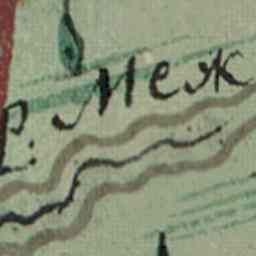 Р: Меж